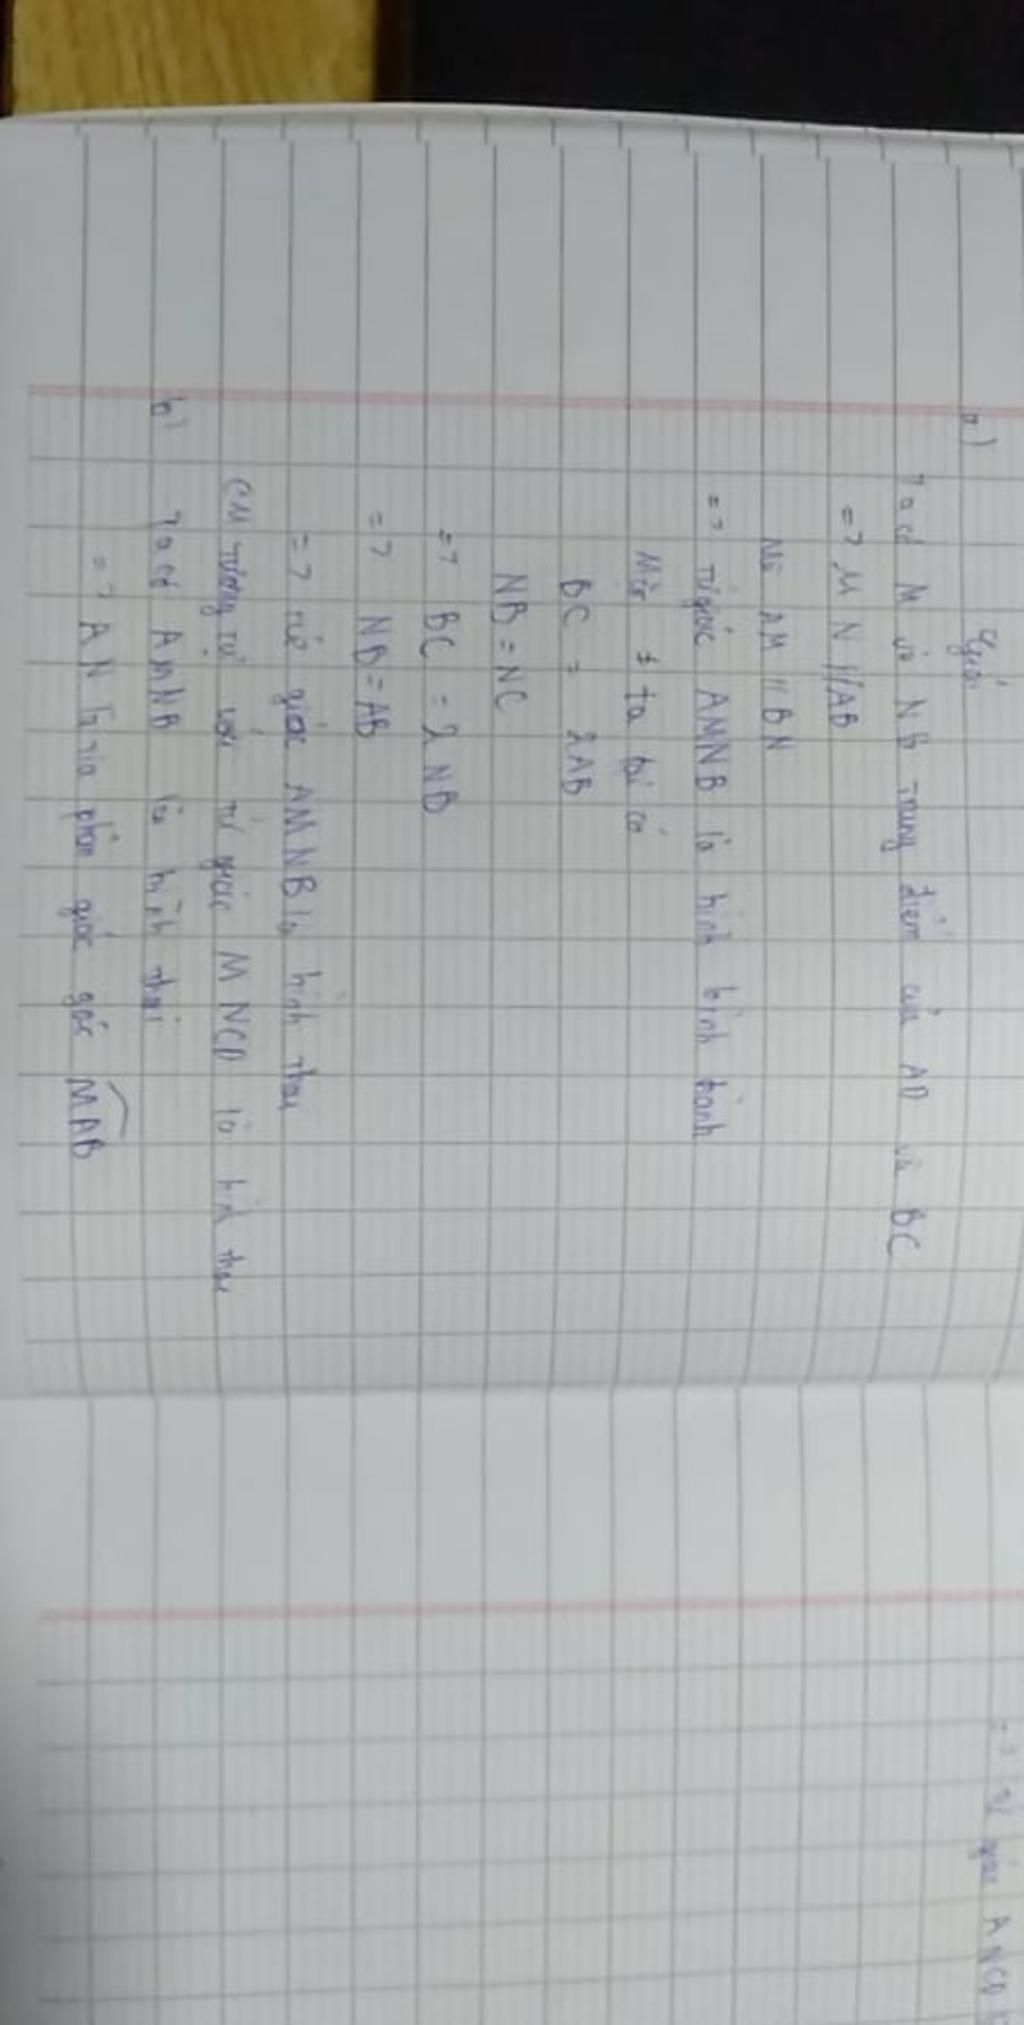 Giải
a)
Ta có M và N là trung điểm của AD và BC
=> MN // AB
Mà AM // BN
=> Tứ giác AMNB là hình bình hành
Mặt # ta lại có
BC = 2AB
NB = NC
=> BC = 2NB
=> NB = AB
=> tứ giác AMNB là hình thoi
CM tương tự với tứ giác MNCD là hình thoi
b) Ta có AMNB là hình thoi
=> AN là tia phân giác góc MAB
=> tứ giác ANCD